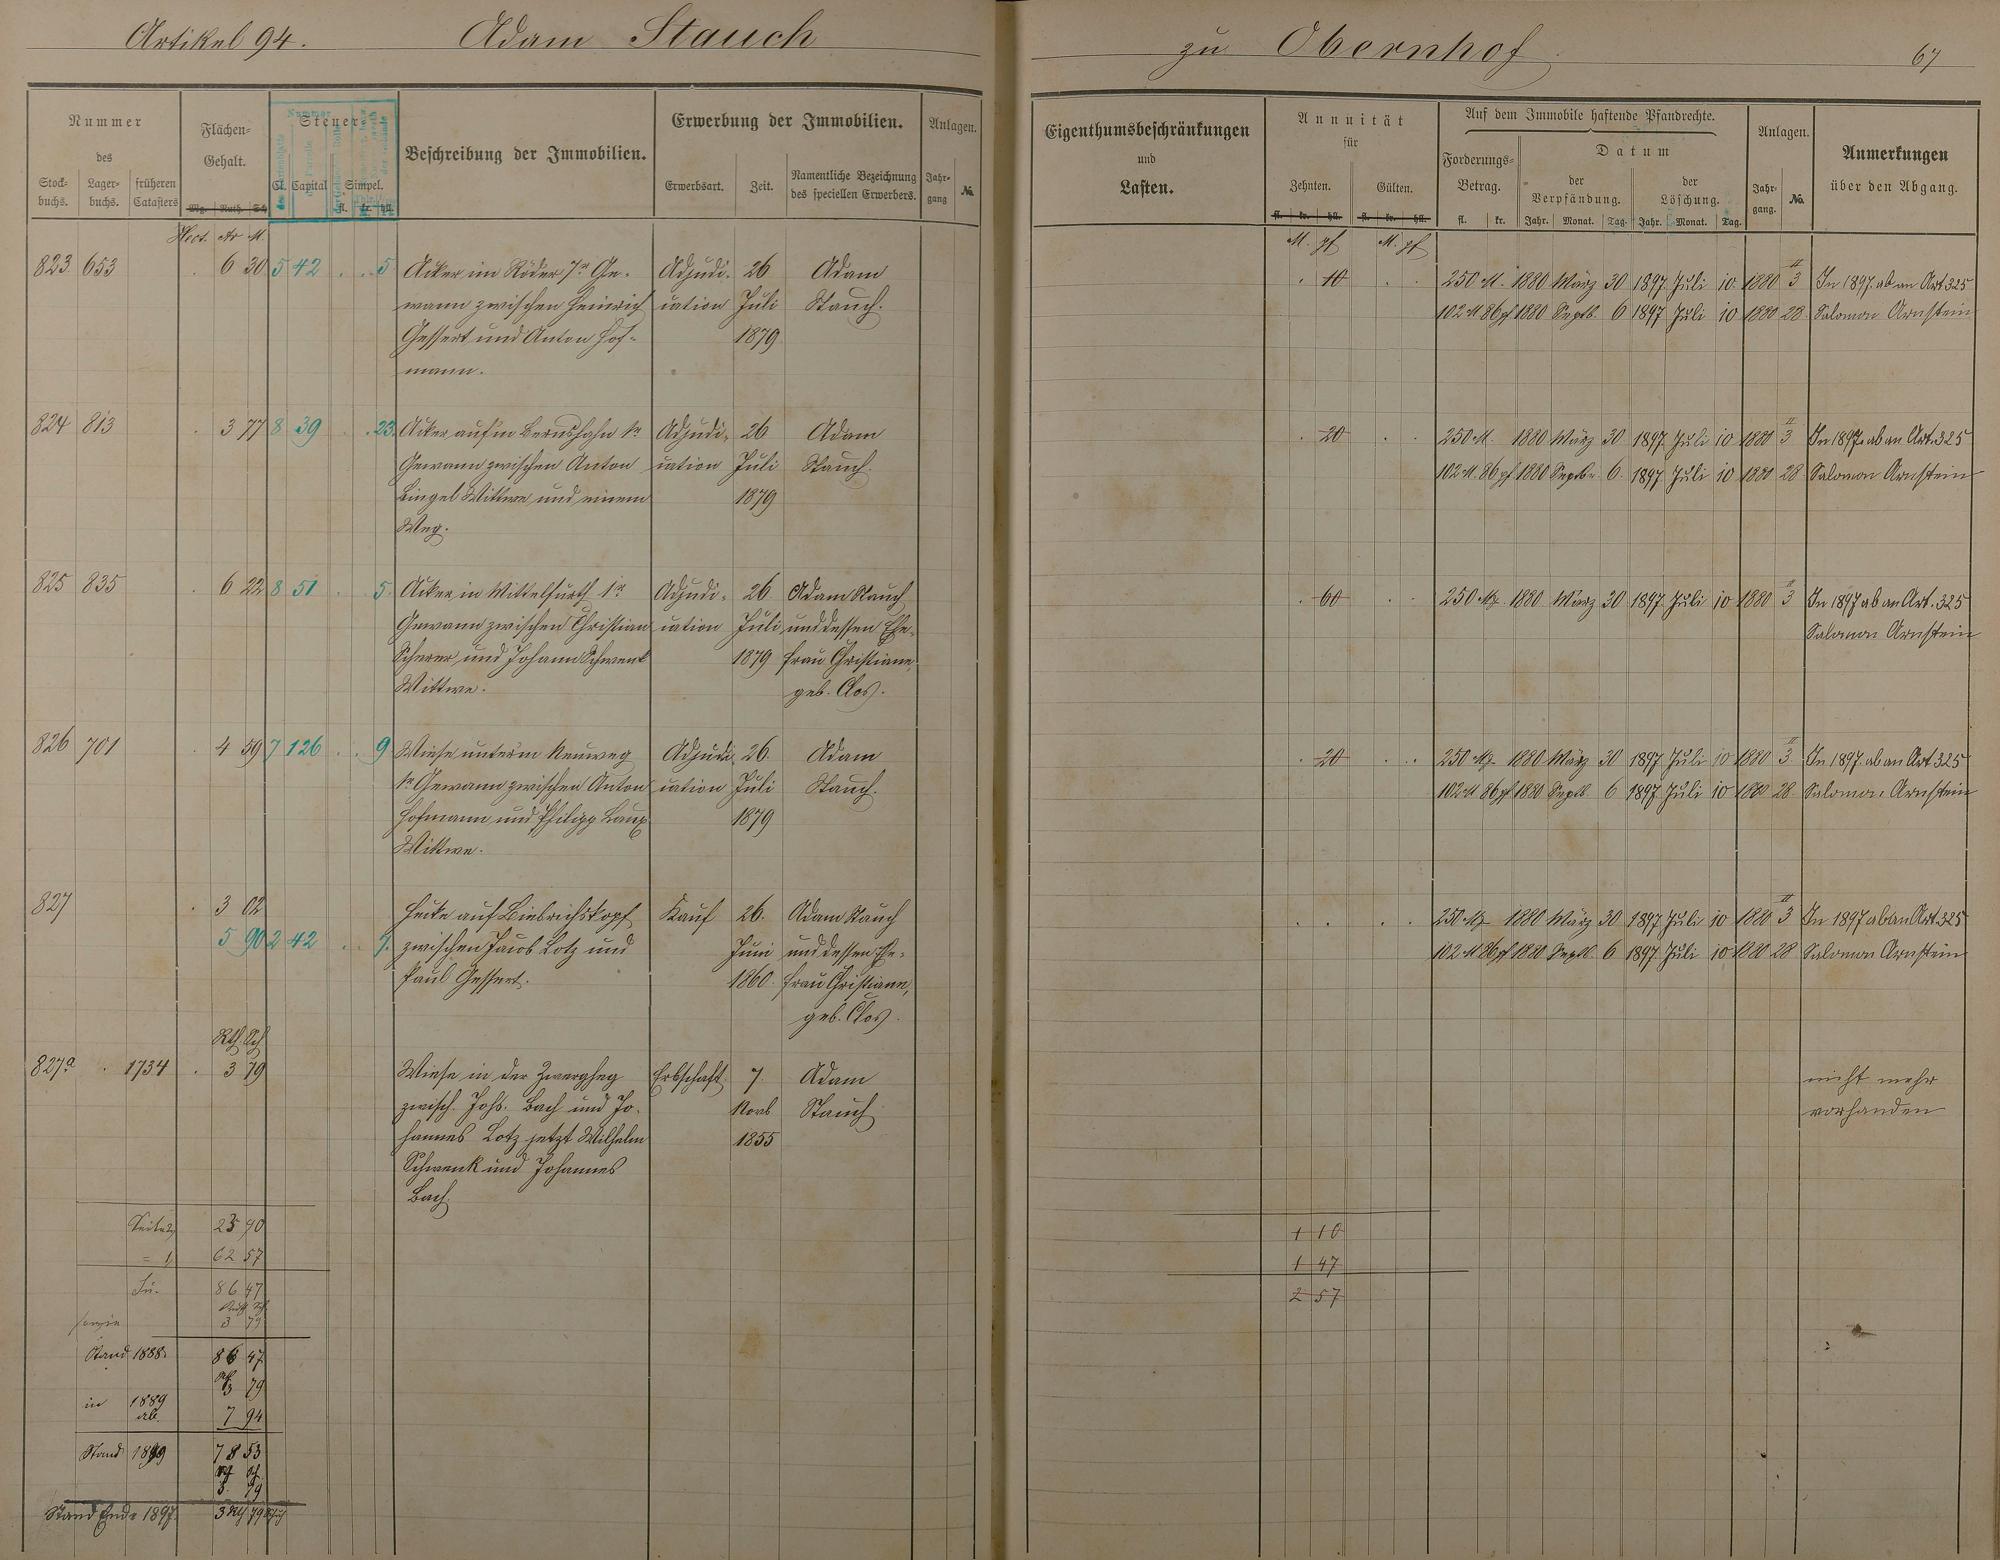 Artikel 94. Adam Stauch
zu Obernhof 67
Nummer
des
Stock-
buchs.
Lager-
buchs.
früheren
Catasters
Flächen-
Gehalt.
Mg. Ruth. Sch
Steuer-
Cl. Capital Simpel.
fl. kr. hll.
Beschreibung der Immobilien.
Erwerbung der Immobilien.
Erwerbsart. Zeit.
Namentliche Bezeichnung
des speciellen Erwerbers.
Anlagen.
Jahr-
gang
No.
Eigenthumsbeschränkungen
und
Lasten.
Annuität
für
Zehnten. Gülten.
fl. kr. hll. fl. kr. hll.
Auf dem Immobile haftende Pfandrechte.
Forderungs-
Betrag.
fl. kr.
Datum
der
Verpfändung.
Jahr. Monat. Tag.
der
Löschung.
Jahr. Monat. Tag.
Anlagen.
Jahr-
gang.
No.
Anmerkungen
über den Abgang.
Hect. Ar M.
M. pf M. pf
823 653 6 30 5 42 5 Acker im Röder 7r Ge-
wann zwischen Heinrich
Gessert und Anton Hof-
mann.
Adjudi-
cation
26
Juli
1879
Adam
Stauch.
10 250 M. 1880 März 30 1897 Juli 10 1880 II 3 In 1897 ab an Art 325
102 M 86 pf 1880 Septb. 6 1897 Juli 10 1880 28 Salomon Arnstein
824 813 3 77 8 39 23 Acker auf'm Bernshahn 1r
Gewann zwischen Anton
Bingel Wittwe und einem
Weg.
Adjudi-
cation
26
Juli
1879
Adam
Stauch.
20 250 M. 1880 März 30 1897 Juli 10 1880 II 3 In 1897 ab an Art. 325
102 M. 86 pf 1880 Septbr. 6. 1897 Juli 10 1880 28 Salomon Arnstein
825 835 6 22 8 51 5. Acker in Mittelfurth 1r
Gewann zwischen Christian
Scherer und Johann Schwenk
Wittwe.
Adjudi-
cation
26.
Juli
1879
Adam Stauch
und dessen Ehe-
frau Christiane,
geb. Clos.
60 250 M. 1880 März 30 1897 Juli 10 1880 II 3 In 1897 ab an Art. 325
Salomon Arnstein
826 701 4 59 7 126 9 Wiese unterm Neuweg
1r Gewann zwischen Anton
Hofmann und Philipp Laux
Wittwe.
Adjudi-
cation
26.
Juli
1879
Adam
Stauch.
20 250 M. 1880 März 30 1897 Juli 10 1880 II 3 In 1897 ab an Art 325
102 M 86 pf 1880 Septb. 6 1897 Juli 10 1880 28 Salomon Arnstein
827 3 02 Hecke auf Biebrichskopf
5 90 2 42 7. zwischen Jacob Lotz und
Paul Gessert.
Kauf
26.
Juni
1860.
Adam Stauch
und dessen Ehe-
frau Christiane,
geb. Clos.
250 M. 1880 März 30 1897 Juli 10 1880 II 3 In 1897 ab an Art. 325
102 M 86 pf 1880 Septb. 6 1897 Juli 10 1880 28 Salomon Arnstein
Rth. Sch
827a 1734 3 79 Wiese in der Zwerghag
zwisch. Johs. Bach und Jo-
hannes Lotz jetzt Wilhelm
Schwenk und Johannes
Bach.
Erbschaft
7.
Novb
1855
Adam
Stauch
nicht mehr
vorhanden
23 90
= 1, 62 57
Su. 86 47
3 79
Stand 1888. 86 47
3 79
in 1889
ab. 7 94
Stand 78 53
Stand Ende 1897.
1 10
1 47
2 57